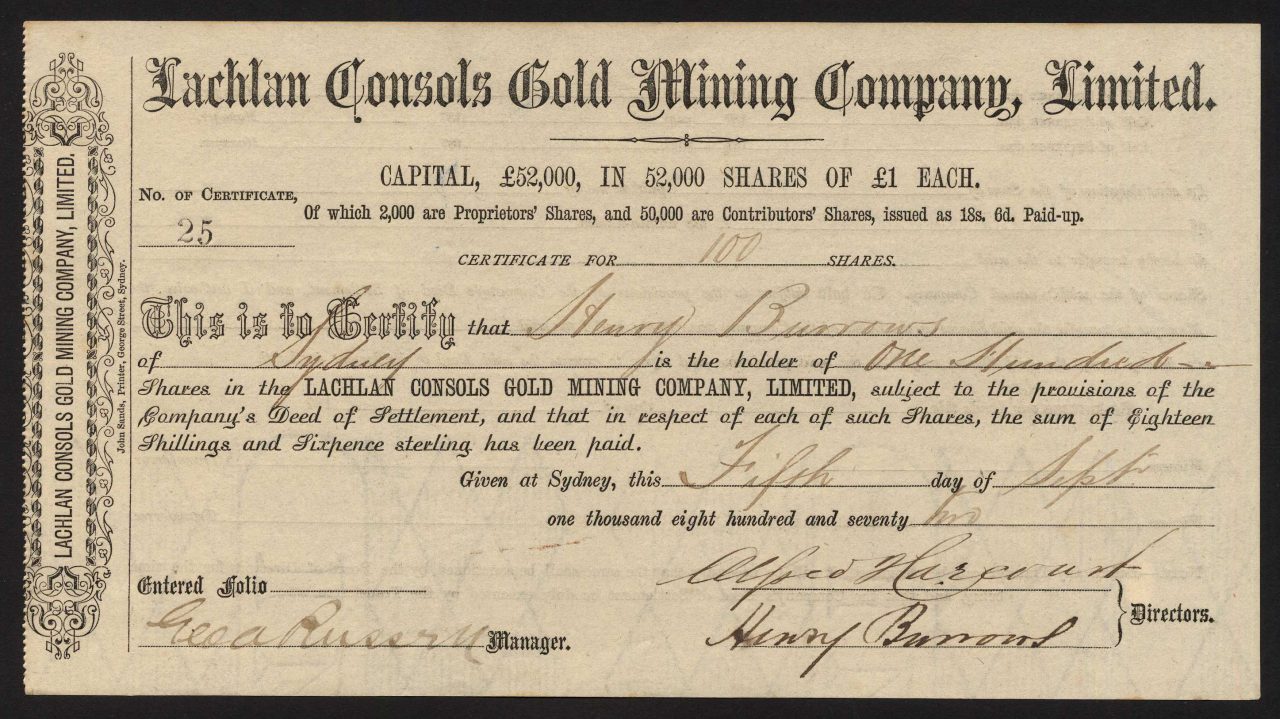 Lachlan Consols Gold Mining Company, Limited.
CAPITAL, £52,000, IN 52,000 SHARES OF £1 EACH.
No. of Certificate,
Of which 2,000 are Proprietors' Shares, and 50,000 are Contributors' Shares, issued as 18s. 6d. Paid-up.
25
CERTIFICATE FOR 100 SHARES.
This is to Certify that Henry Burrows
of Sydney is the holder of One Hundred
Shares in the LACHLAN CONSOLS GOLD MINING COMPANY, LIMITED, subject to the provisions of the
Company's Deed of Settlement, and that in respect of each of such Shares, the sum of Eighteen
Shillings and Sixpence sterling has been paid.
Given at Sydney, this Fifth day of Septr
one thousand eight hundred and seventy two
Alfred Harcourt
Entered Folio
Directors.
Henry Burrows
Manager.
LACHLAN CONSOLS GOLD MINING COMPANY, LIMITED.
John Sands, Printer, George Street, Sydney.